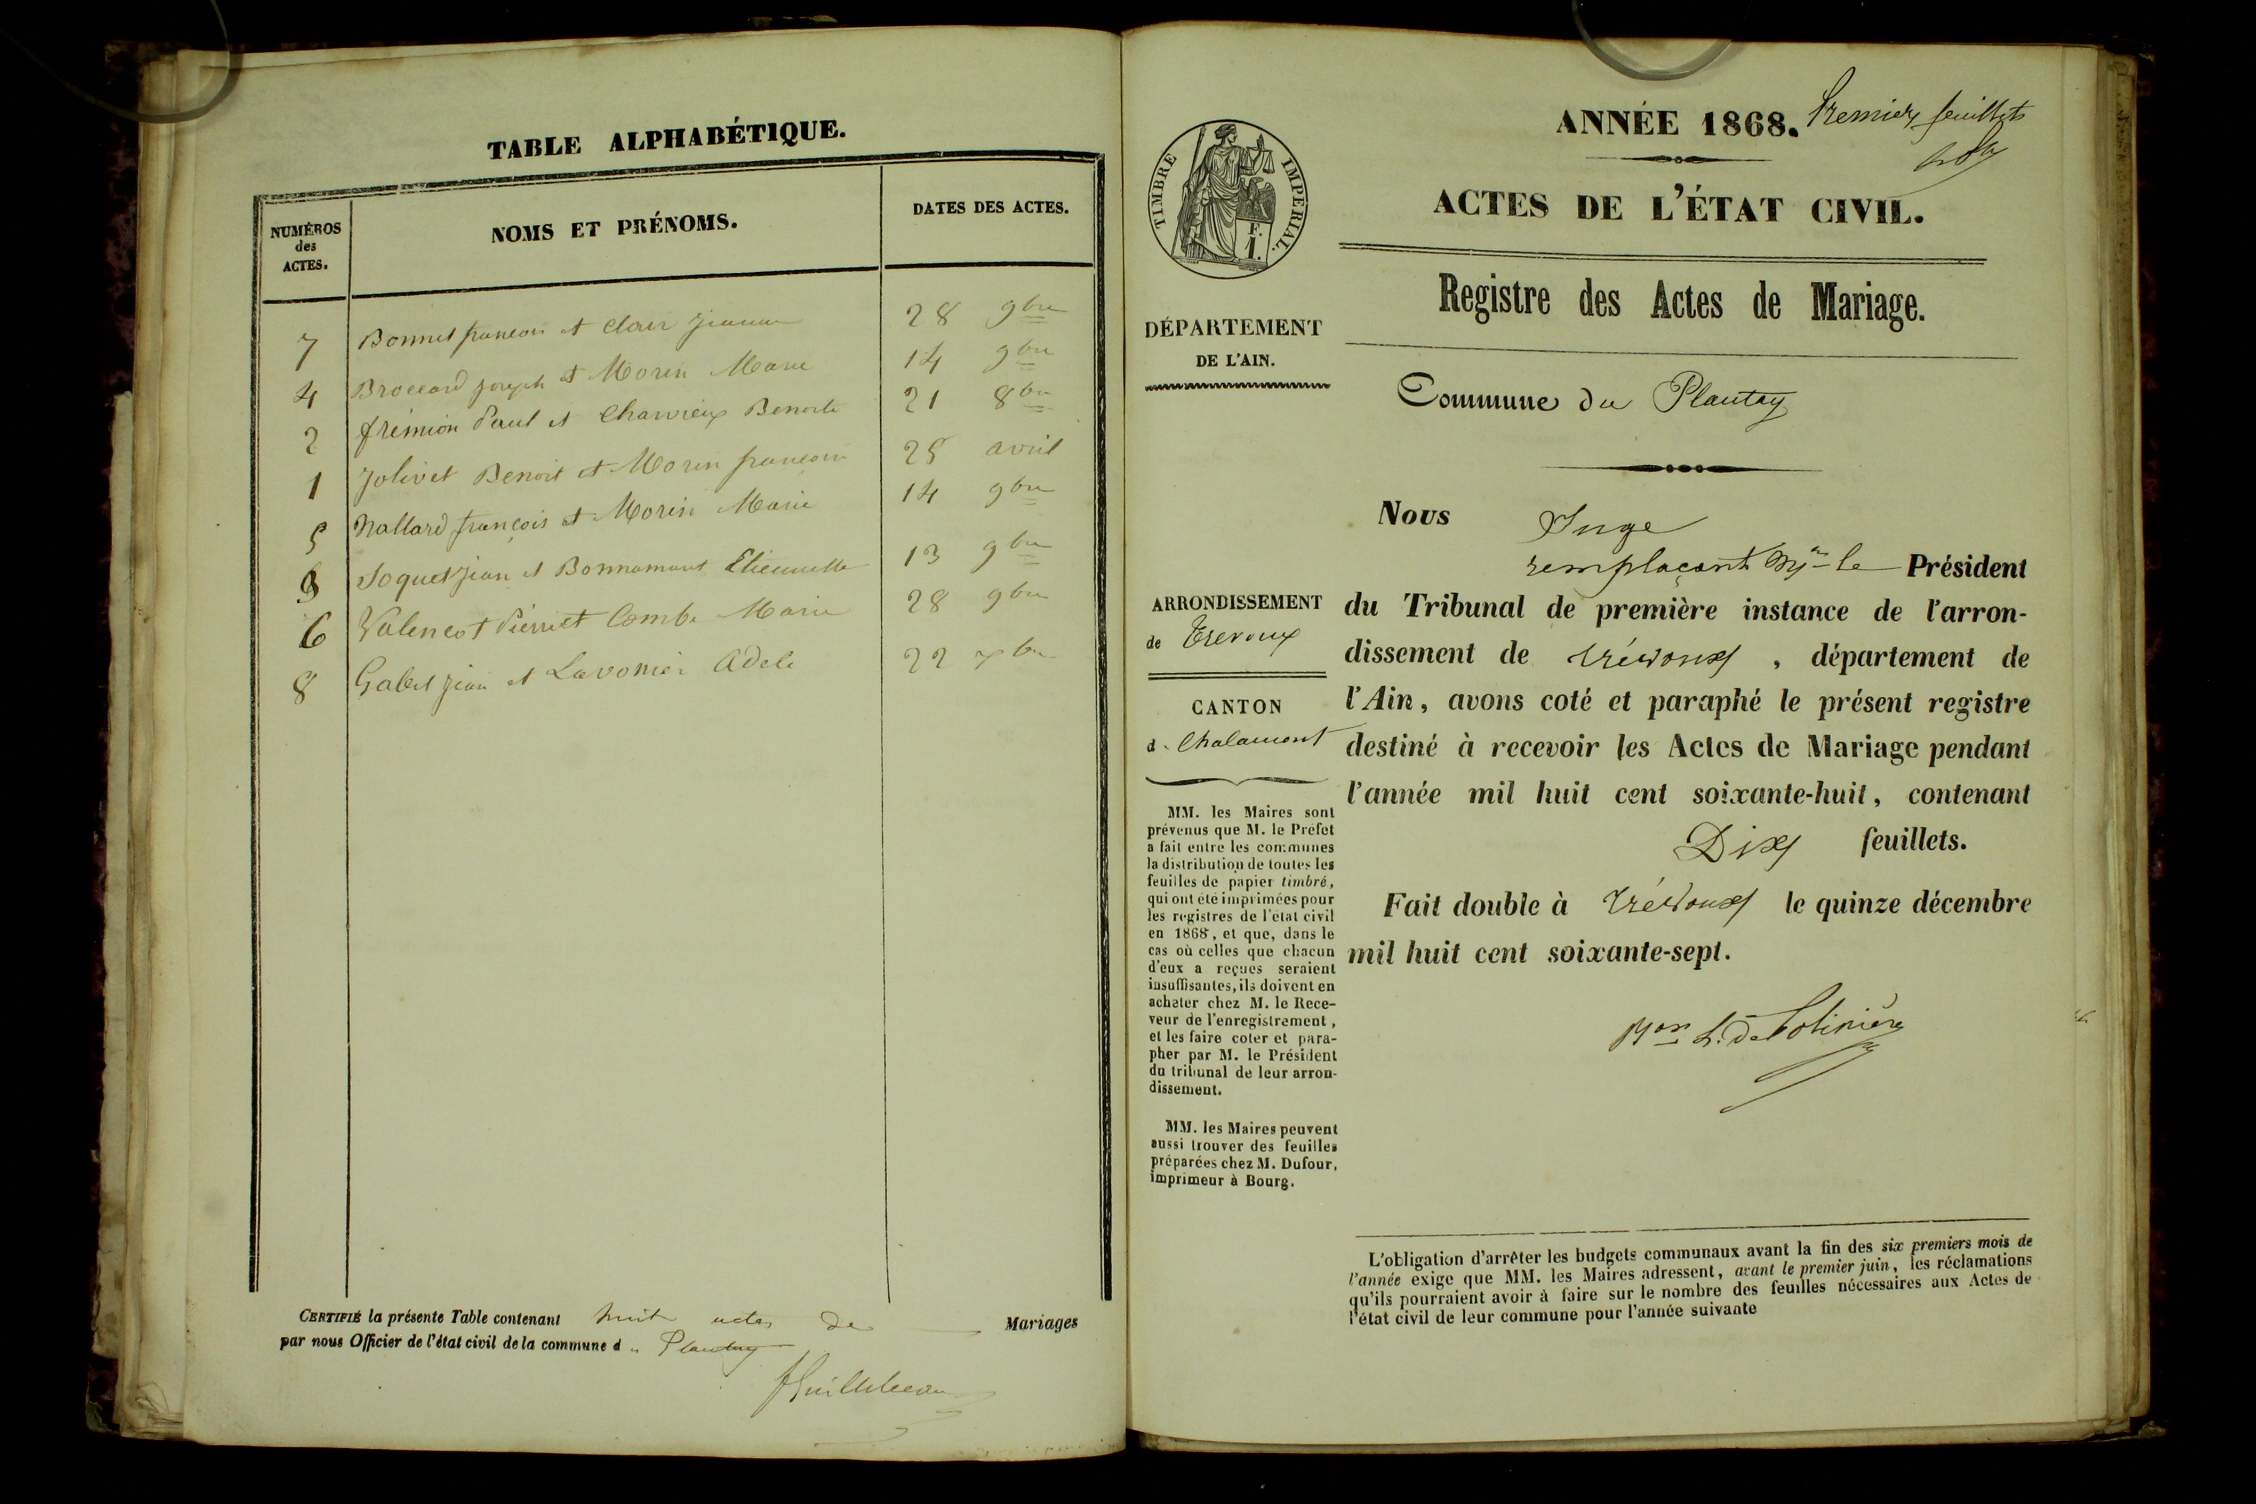 TABLE ALPHABÉTIQUE.
NUMÉROS des ACTES.
NOMS ET PRÉNOMS.
DATES DES ACTES.
7 Bonnet francois et Clair Jeanne 28 9bre
4 Broccard Joseph et Morin Marie 14 9bre
2 frémion Paul et Charvieux Benoite 21 8bre
1 Jolivet Benoit et Morin francoise 25 avril
5 Nallard françois et Morin Marie 14 9bre
3 Soquet Jean et Bonnamour Etiennette 13 9bre
6 Valencot Pierre et Combe Marie 28 9bre
8 Gabet Jean et Lavonier Adele 22 xbre
CERTIFIÉ la présente Table contenant huit actes de Mariages
par nous Officier de l'état civil de la commune du Plantay
ANNÉE 1868.
Premier feuillet
TIMBRE IMPÉRIAL.
F.
1.
ACTES DE L'ÉTAT CIVIL.
Registre des Actes de Mariage.
DÉPARTEMENT
DE L'AIN.
Commune du Plantay
ARRONDISSEMENT
de Trevoux
CANTON
d. Chalamont
MM. les Maires sont
prévenus que M. le Préfet
a fait entre les communes
la distribution de toutes les
feuilles de papier timbré,
qui ont été imprimées pour
les registres de l'état civil
en 1868, et que, dans le
cas où celles que chacun
d'eux a reçues seraient
insuffisantes, ils doivent en
acheter chez M. le Rece-
veur de l'enregistrement,
et les faire coter et para-
pher par M. le Président
du tribunal de leur arron-
dissement.
MM. les Maires peuvent
aussi trouver des feuilles
préparées chez M. Dufour,
imprimeur à Bourg.
Nous Juge
remplaçant Mr le Président
du Tribunal de première instance de l'arron-
dissement de Trévoux, département de
l'Ain, avons coté et paraphé le présent registre
destiné à recevoir les Actes de Mariage pendant
l'année mil huit cent soixante-huit, contenant
Dix feuillets.
Fait double à Trévoux le quinze décembre
mil huit cent soixante-sept.
L'obligation d'arrêter les budgets communaux avant la fin des six premiers mois de
l'année exige que MM. les Maires adressent, avant le premier juin, les réclamations
qu'ils pourraient avoir à faire sur le nombre des feuilles nécessaires aux Actes de
l'état civil de leur commune pour l'année suivante